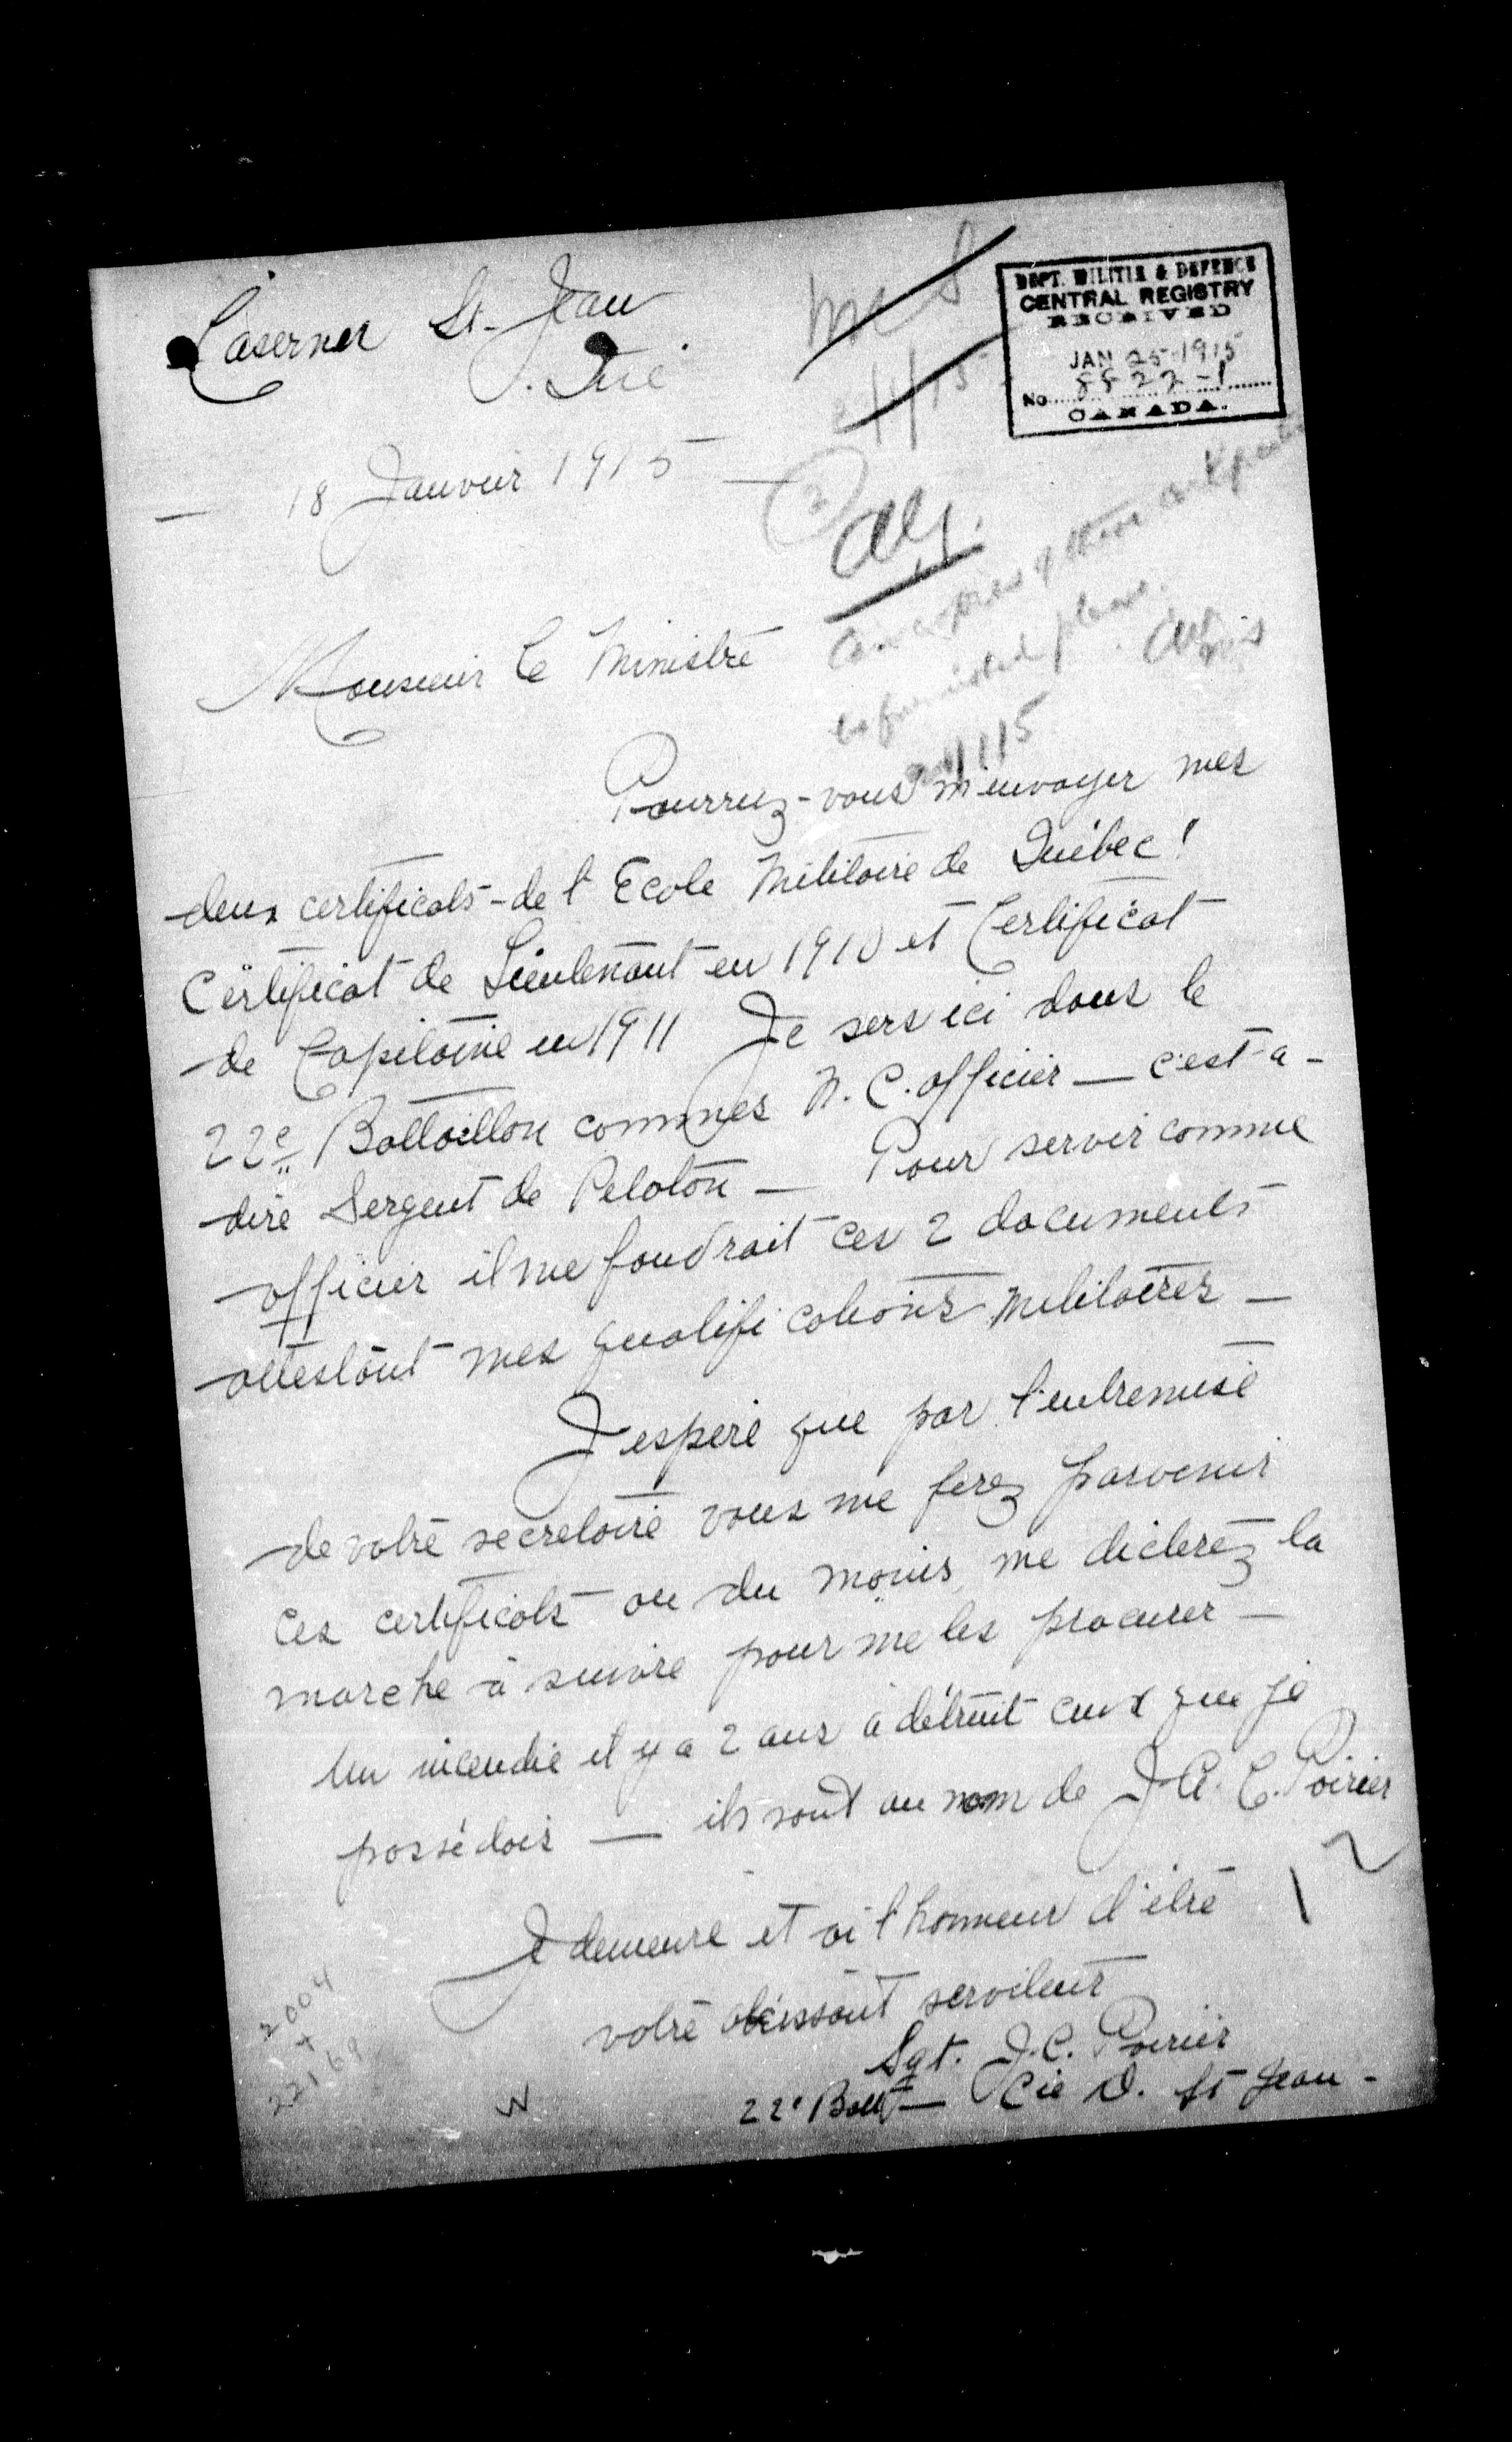 Casernes St-Jean
Qué
DEPT. MILITIA & DEFENCE
CENTRAL REGISTRY
RECEIVED
JAN 25 1915
No. 8822-1
CANADA.
— 18 Janvier 1915 —
2
Can copies of these certificates
be furnished please.
Monsieur le Ministre
Pourriez-vous m'envoyer mes
deux certificats - de l'Ecole Militaire de Québec!
Certificat de Lieutenant en 1910 et Certificat
de Capitaine en 1911 Je sers ici dans le
22e Bataillon commes N. C. officier — c'est-a-
dire Sergent de Peloton — Pour servir comme
officier il me faudrait ces 2 documents
attestant mes qualifications militaires —
J'espère que par l'entremise
de votre secretaire vous me ferez parvenir
ces certificats ou du moins me dicterez la
marche à suivre pour me les procurer —
Un incendie il y a 2 ans a détruit ceux que je
possédais — ils sont au nom de J. A. C. Poirier
Je demeure et ai l'honneur d'être
votre obéissant serviteur
Sgt. J. C. Poirier
22e Batt — Cie D. St Jean -
2004
22169